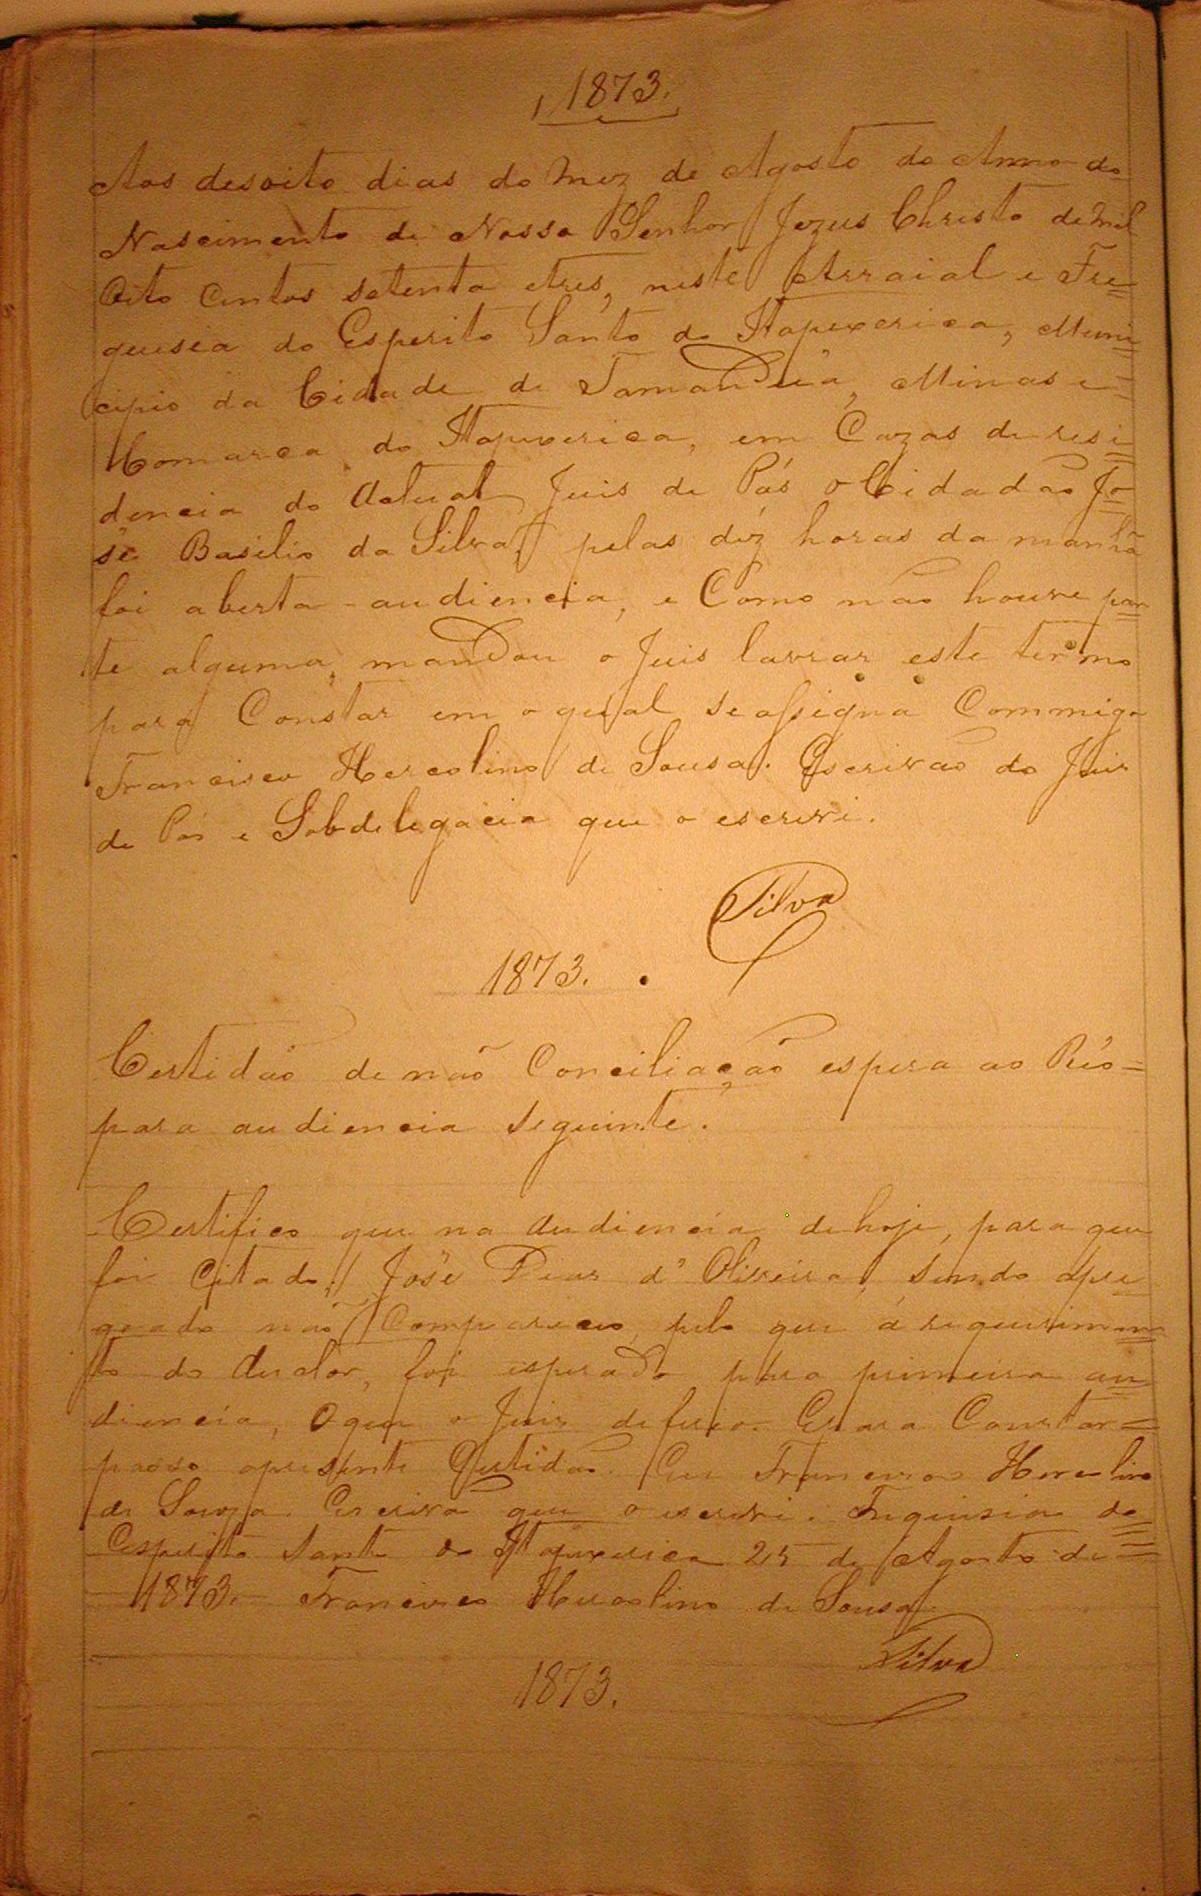 1873.
Aos desoito dias do Mez de Agosto do Anno do
Nascimento de Nosso Senhor Jezus Christo de Mil
Oito Centos setenta e tres, neste Arraial e Fre=
guisia do Esperito Santo do Itapexerica, Muni=
cipio da Cidade de Tamanduá, Minas e=
Comarca do Itapexerica, em Cazas de resi=
dencia do Actual Juis de Pás o Cidadão Jo=
sé Basilio da Silva, pelas déz horas da manhã
foi aberta audiencia, e Como não houve par=
te alguma, mandou o Juis lavrar este termo
para Constar em o qual se assigna Commigo
Francisco Hercolino de Sousa. Escrivão do Juis
de Pás e Sobdelegacia que o escrivi.
Silva
1873.
Certidão de não Conciliação espera ao Réo=
para audiencia seguinte.
Certifico que na Audiencia de hoje, para que
foi Citado, José Dias d'Oliveira, sendo apre=
goado não Compareceo, pelo que á requerimen=
to do Auctor, foi esperado para primeira au=
diencia, O que o Juis deferio. E para Constar=
passo apresente Certidão. Eu Francisco Hercolino
de Souza Escrivão que o escrivi. Freguisia do=
Esperito Santo do Itapexerica 25 de Agosto de=
1873. Francisco Hercolino de Sousa
Silva
1873.